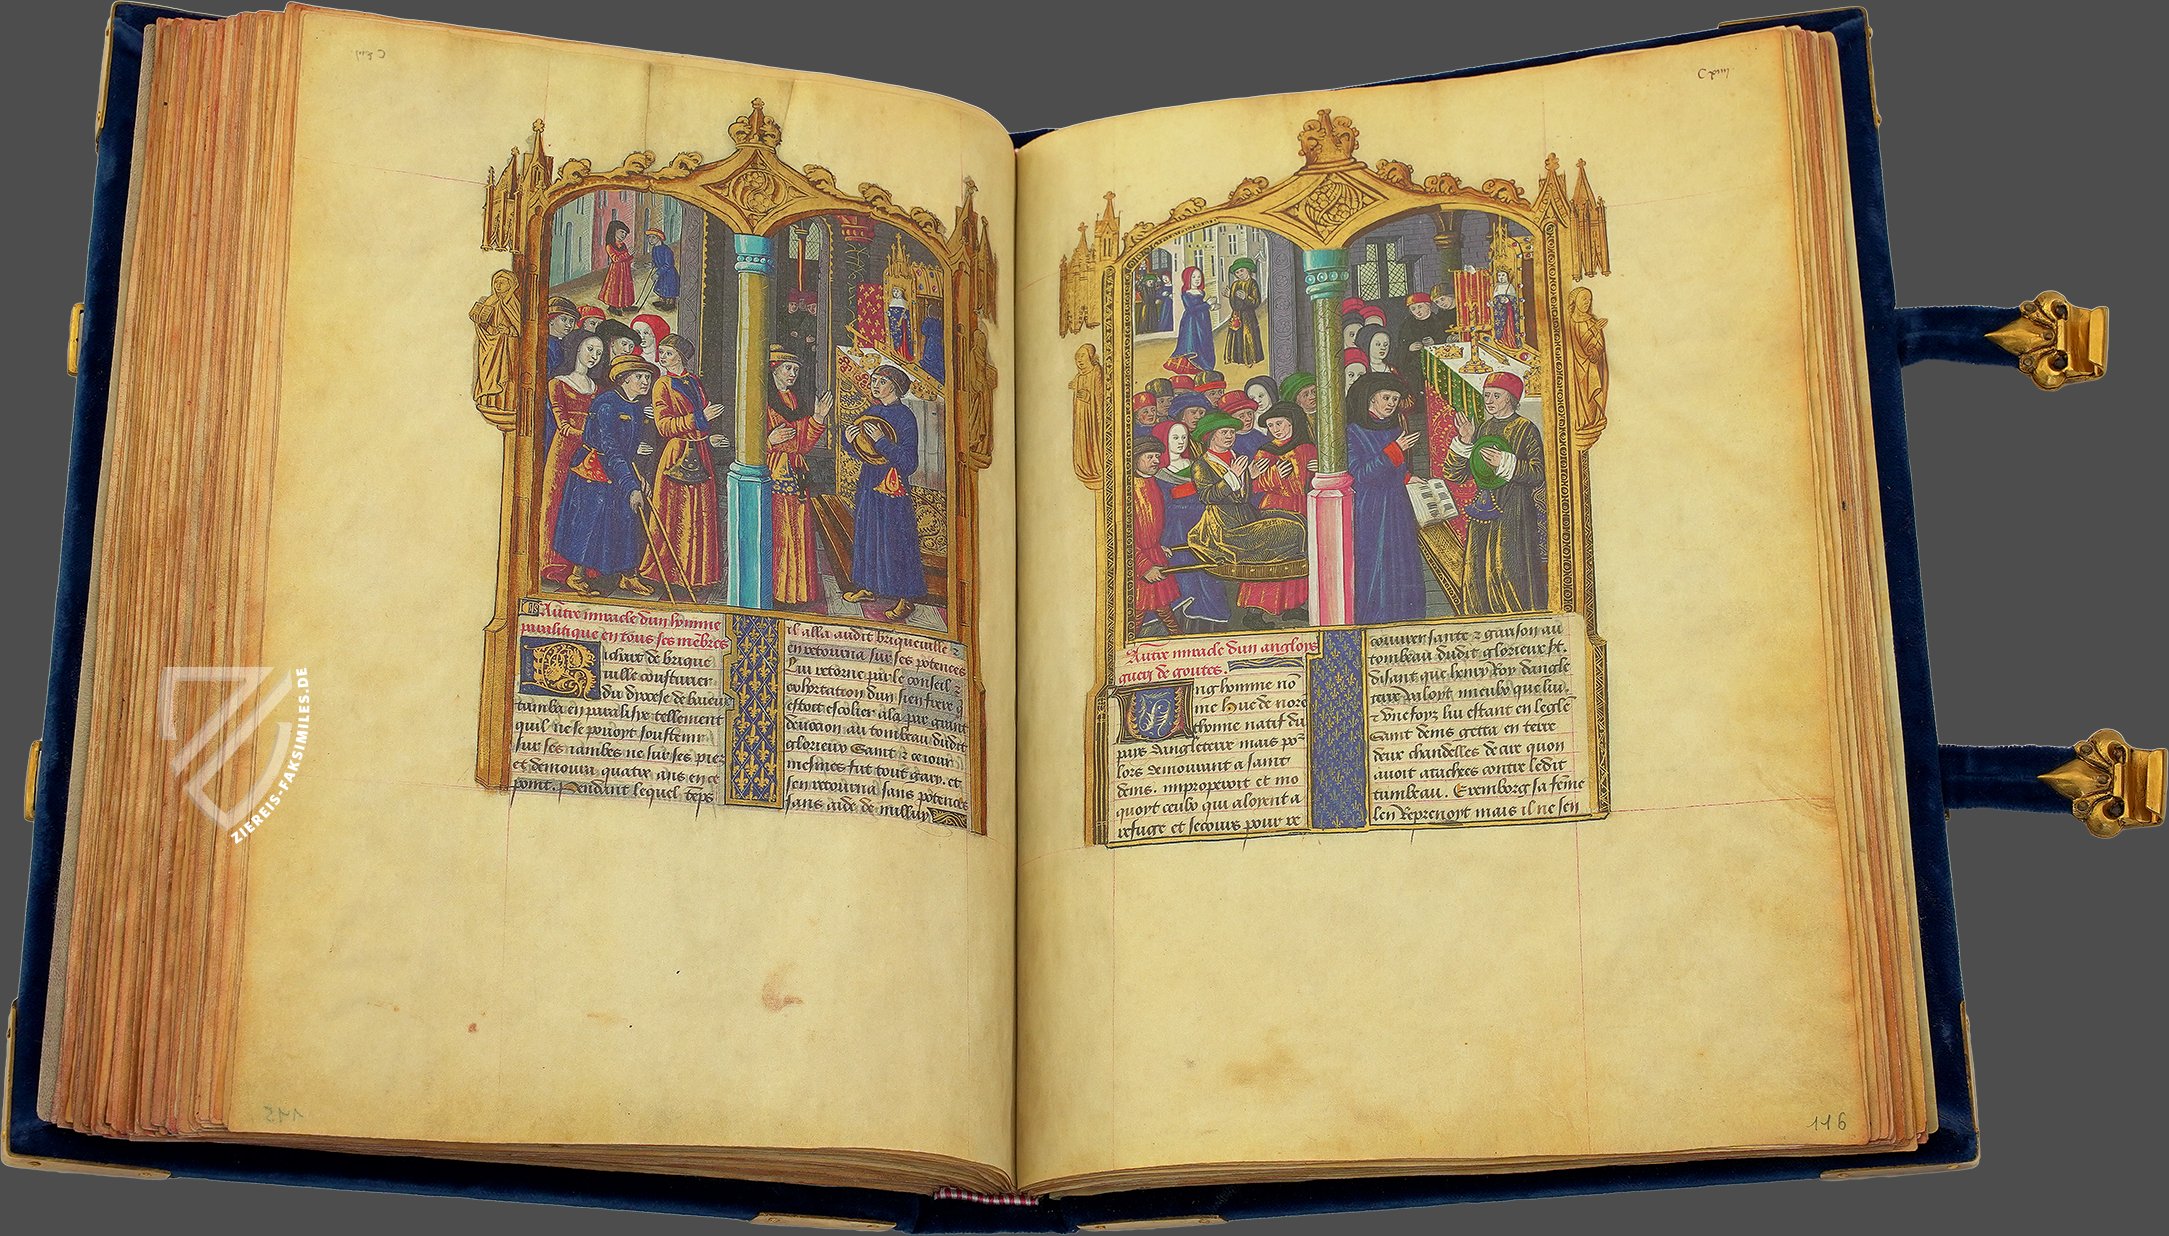 Cxiiii
Aultre miracle dun homme
paralitique en tous ses mēbres
Richart de brique
uille cousturier
du diocese de baieux
tumba en paralisie tellement
quil ne se pouoyt soustenir
sur ses iambes ne sur ses piez
et demoura quatre ans en ce
point. Pendant lequel tēps
il alla audit briqueuille z
en retourna sur ses potences
Lui retorne par le conseil z
exhortation dun sien frere q
estoit escolier ala par grant
deuocion au tombeau dudit
glorieux Saint z ce iour
mesmes fut tout gary. et
sen retourna sans potences
sans aide de nulluy
115
Aultre miracle dun anglois
guery de goutes.
Vng homme nō
me hue de nore
thonne natif du
pays dangleterre mais po²
lors demourant a saint
denis. improperoit et mo
quoyt ceulx qui aloyent a
refuge et secours pour re
couurer sante z garison au
tombeau dudit glorieux st.
disant que henry Roy dangle
terre valoyt mieulx que lui.
z vne foyz lui estant en legle
Saint denis getta en terre
deux chandelles de cire quon
auoit atachees contre ledit
tumbeau. Eremborg sa fēme
len Reprenoyt mais il ne sen
116
ZIEREIS-FAKSIMILES.DE